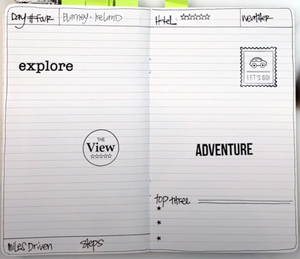 Day # Four
Blarney - Ireland
explore
THE
View
miles Driven
steps
Hotel:
weather
LET'S GO!
ADVENTURE
top three